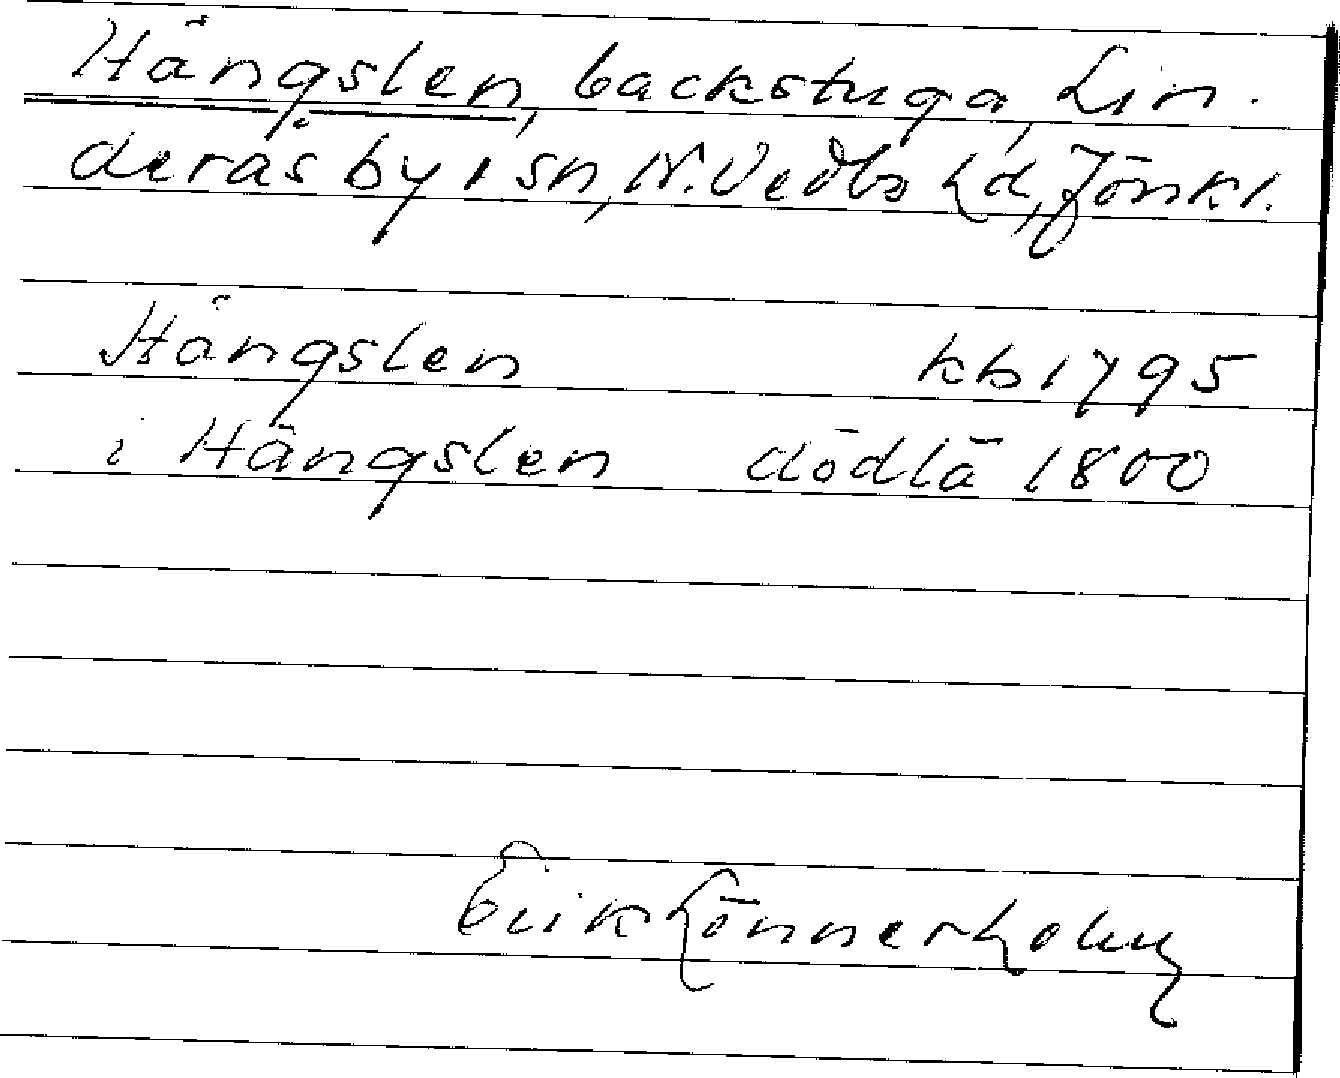 Hängslen, backstuga, Lin-
derås by i sn, N. Vedbo hd, Jönk l.
Hängslen kb 1795
i Hängslen dödlä 1800
Erik Lönnerholm